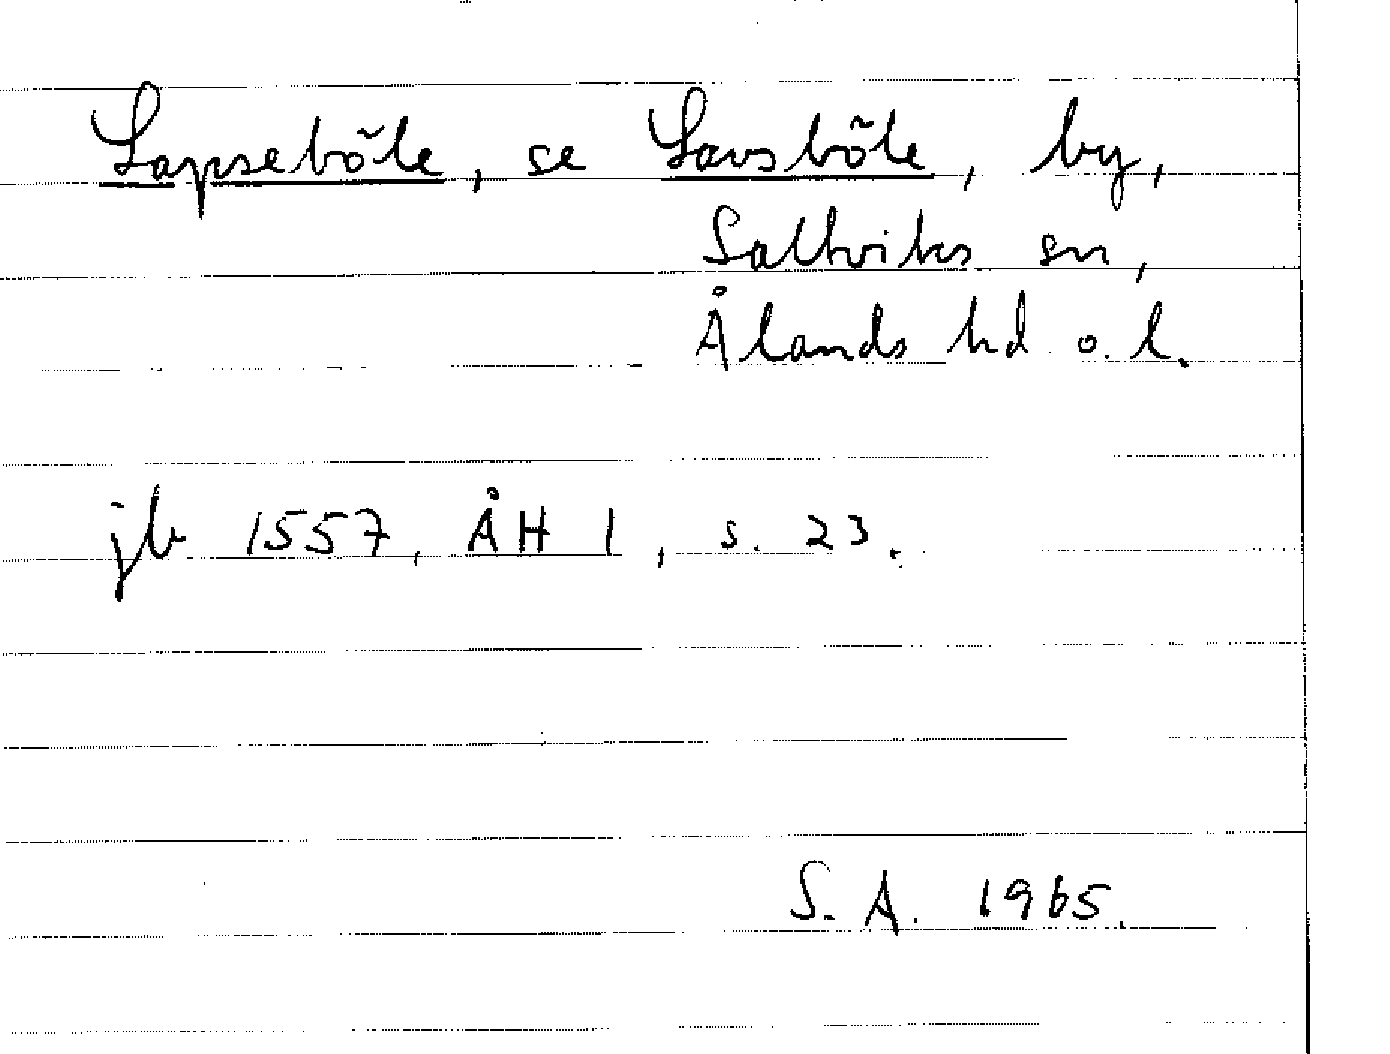 Lapseböle, se Lavsböle, by,
Saltviks sn,
Ålands hd o. l.
jb 1557, ÅH 1, s. 23.
S. A. 1965.